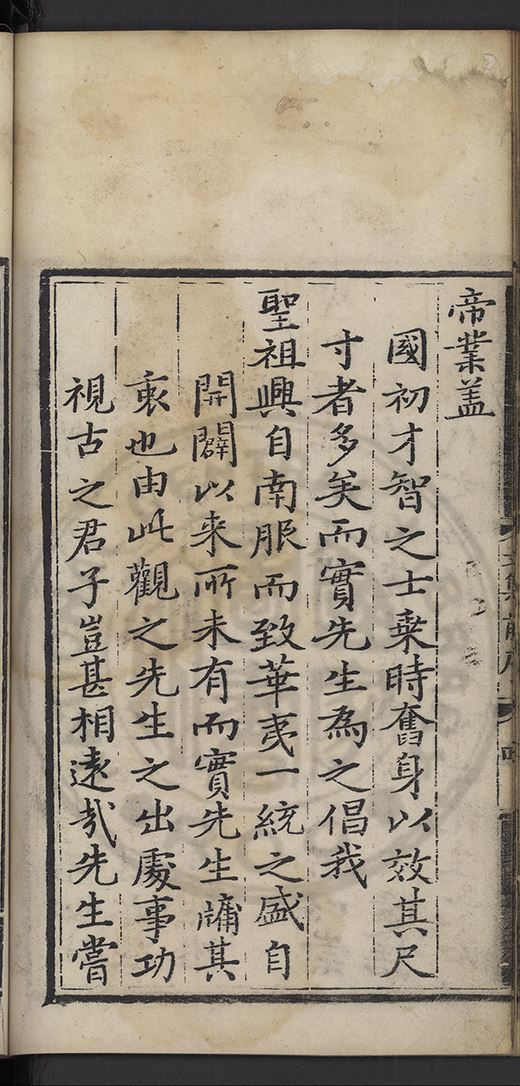 帝業盖
國初才智之士乗時奮身以效其尺
寸者多矣而實先生為之倡我
聖祖興自南服而致華夷一統之盛自
開闢以来所未有而實先生牗其
衷也由此觀之先生之出處事功
視古之君子豈甚相遠㢤先生嘗